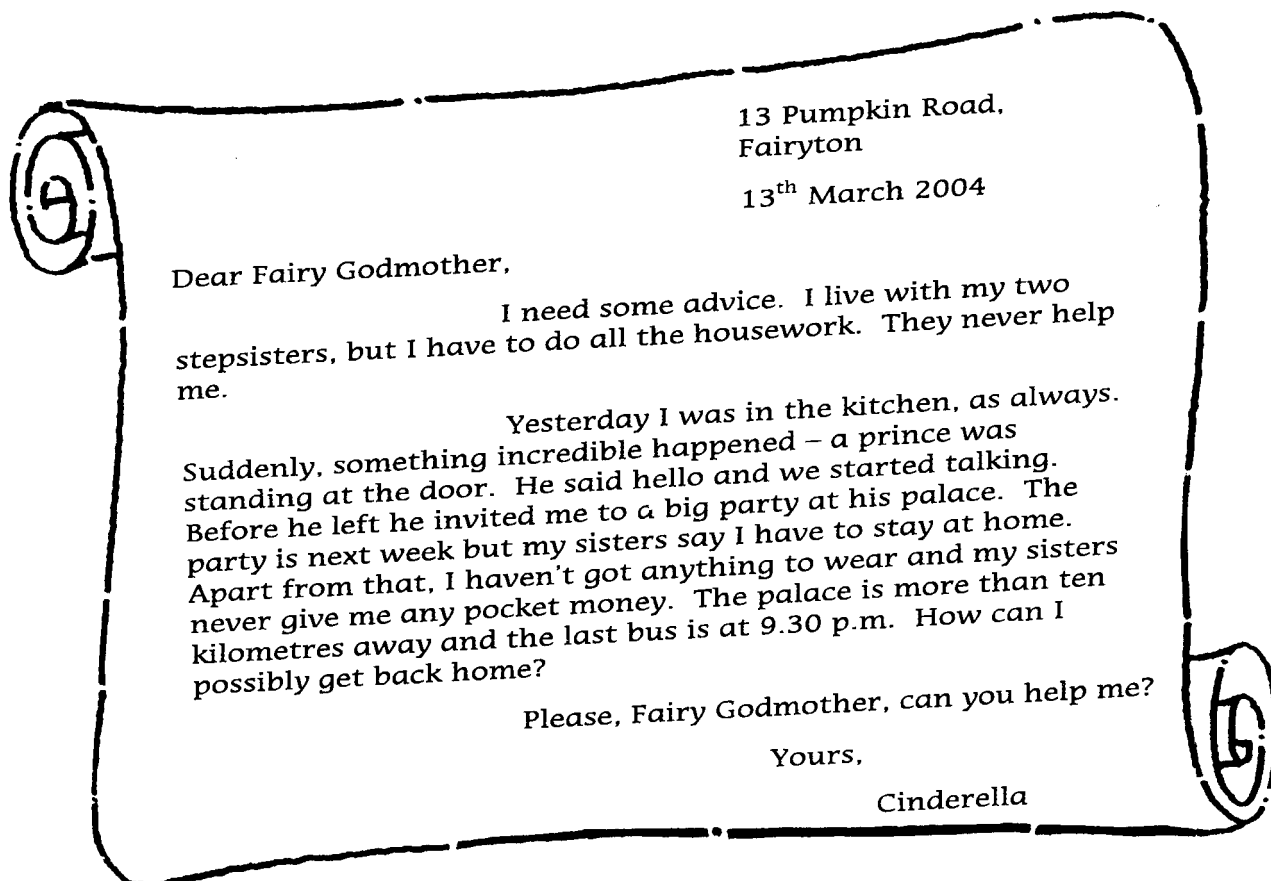 13 Pumpkin Road,
Fairyton
13th March 2004
Dear Fairy Godmother,
I need some advice. I live with my two
stepsisters, but I have to do all the housework. They never help
me.
Yesterday I was in the kitchen, as always.
Suddenly, something incredible happened – a prince was
standing at the door. He said hello and we started talking.
Before he left he invited me to a big party at his palace. The
party is next week but my sisters say I have to stay at home.
Apart from that, I haven't got anything to wear and my sisters
never give me any pocket money. The palace is more than ten
kilometres away and the last bus is at 9.30 p.m. How can I
possibly get back home?
Please, Fairy Godmother, can you help me?
Yours,
Cinderella